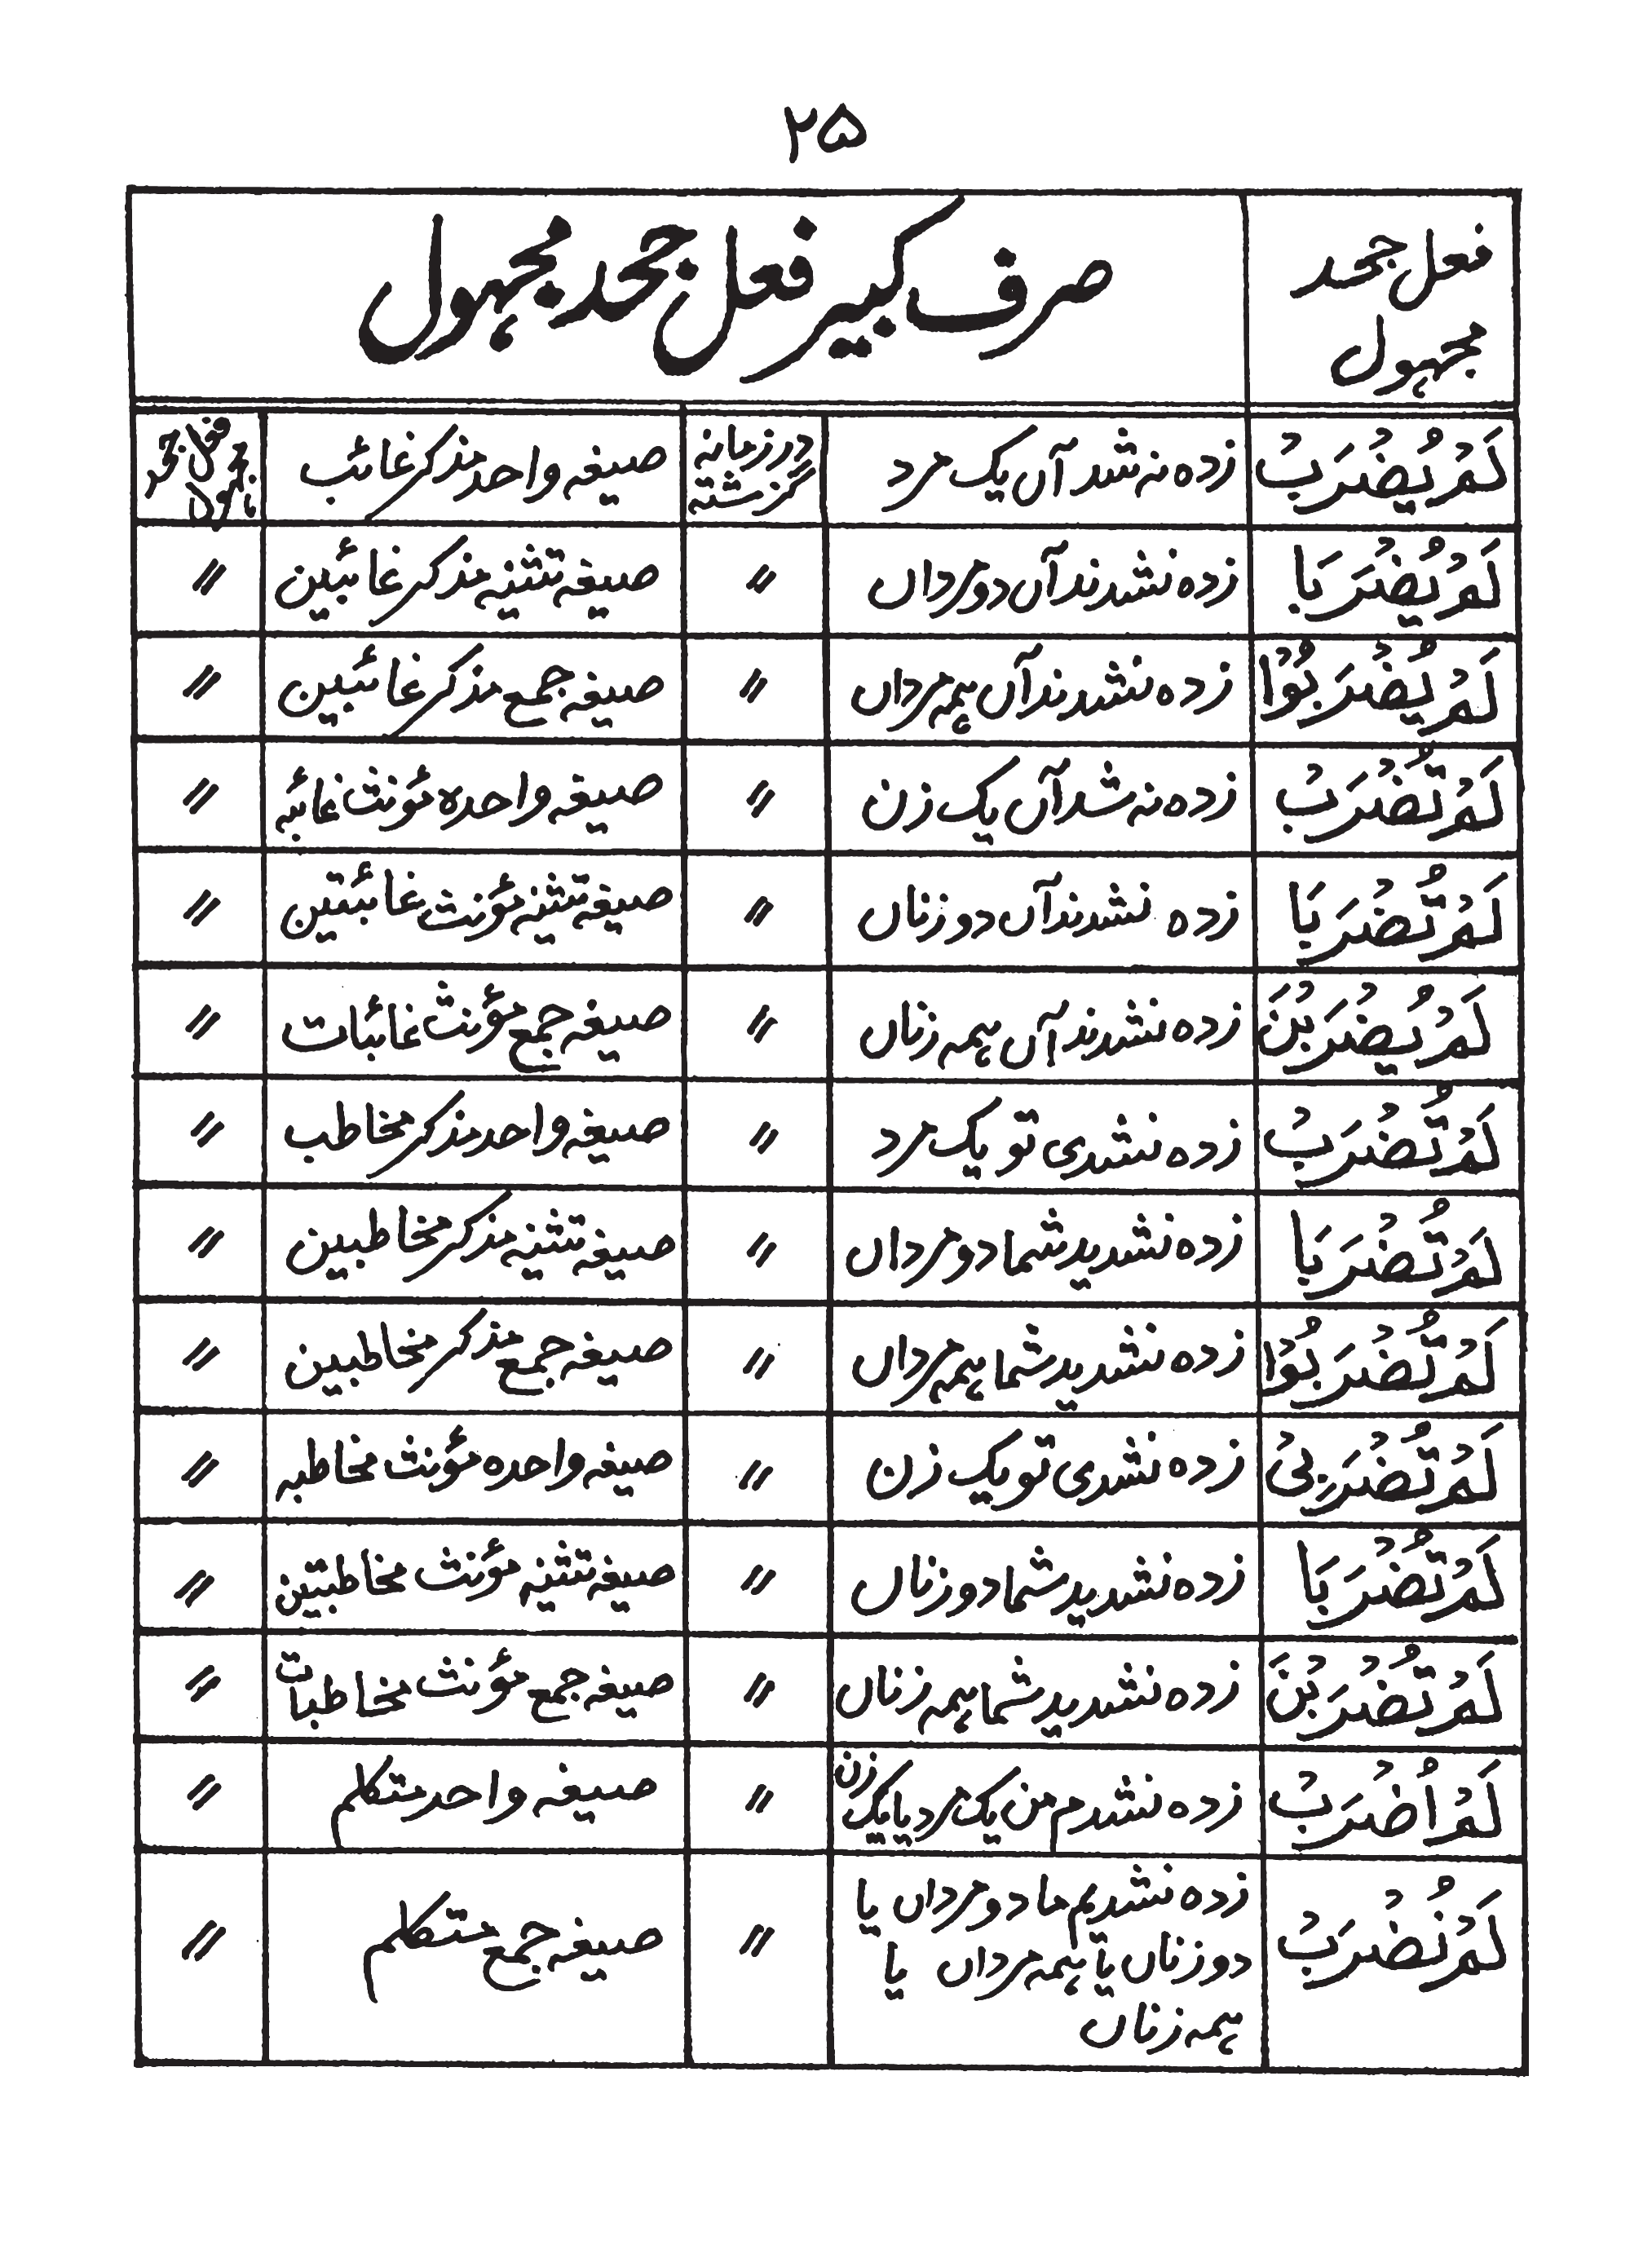 ۲۵
فعل جحد
مجہول
صرف کبیر فعل جحد مجہول
لَمْ يُضْرَبْ زدہ نہ شد آں یک مرد در زمانہ گزشتہ صیغہ واحد مذکر غائب فعل جحد مجہول
لَمْ يُضْرَبَا زدہ نشدند آں دو مرداں 〃 صیغہ تثنیہ مذکر غائبین 〃
لَمْ يُضْرَبُوْا زدہ نشدند آں ہمہ مرداں 〃 صیغہ جمع مذکر غائبین 〃
لَمْ تُضْرَبْ زدہ نہ شد آں یک زن 〃 صیغہ واحدہ مؤنث غائبہ 〃
لَمْ تُضْرَبَا زدہ نشدند آں دو زناں 〃 صیغہ تثنیہ مؤنث غائبتین 〃
لَمْ يُضْرَبْنَ زدہ نشدند آں ہمہ زناں 〃 صیغہ جمع مؤنث غائبات 〃
لَمْ تُضْرَبْ زدہ نشدی تو یک مرد 〃 صیغہ واحد مذکر مخاطب 〃
لَمْ تُضْرَبَا زدہ نشدید شما دو مرداں 〃 صیغہ تثنیہ مذکر مخاطبین 〃
لَمْ تُضْرَبُوْا زدہ نشدید شما ہمہ مرداں 〃 صیغہ جمع مذکر مخاطبین 〃
لَمْ تُضْرَبِیْ زدہ نشدی تو یک زن 〃 صیغہ واحدہ مؤنث مخاطبہ 〃
لَمْ تُضْرَبَا زدہ نشدید شما دو زناں 〃 صیغہ تثنیہ مؤنث مخاطبتین 〃
لَمْ تُضْرَبْنَ زدہ نشدید شما ہمہ زناں 〃 صیغہ جمع مؤنث مخاطبات 〃
لَمْ اُضْرَبْ زدہ نشدم من یک مرد یا یک زن 〃 صیغہ واحد متکلم 〃
لَمْ نُضْرَبْ زدہ نشدیم ما دو مرداں یا
دو زناں یا ہمہ مرداں یا
ہمہ زناں 〃 صیغہ جمع متکلم 〃